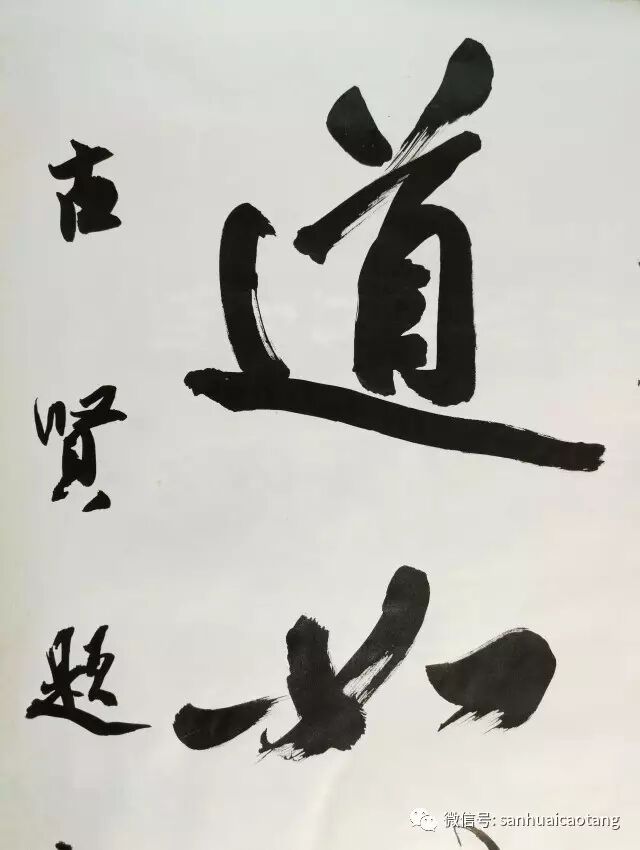 道如
古贤题
微信号: sanhuaicaotang